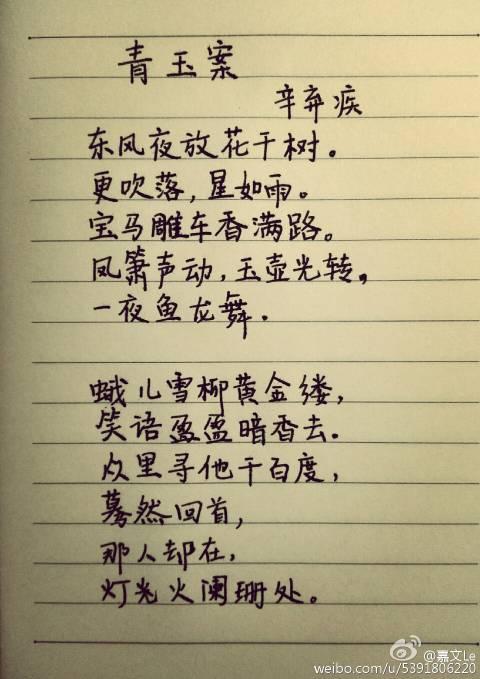 青玉案
辛弃疾
东风夜放花千树。
更吹落,星如雨。
宝马雕车香满路。
凤箫声动,玉壶光转,
一夜鱼龙舞.
蛾儿雪柳黄金缕,
笑语盈盈暗香去.
众里寻他千百度,
蓦然回首,
那人却在,
灯光火阑珊处。
@嘉文Le
weibo.com/u/5391806220